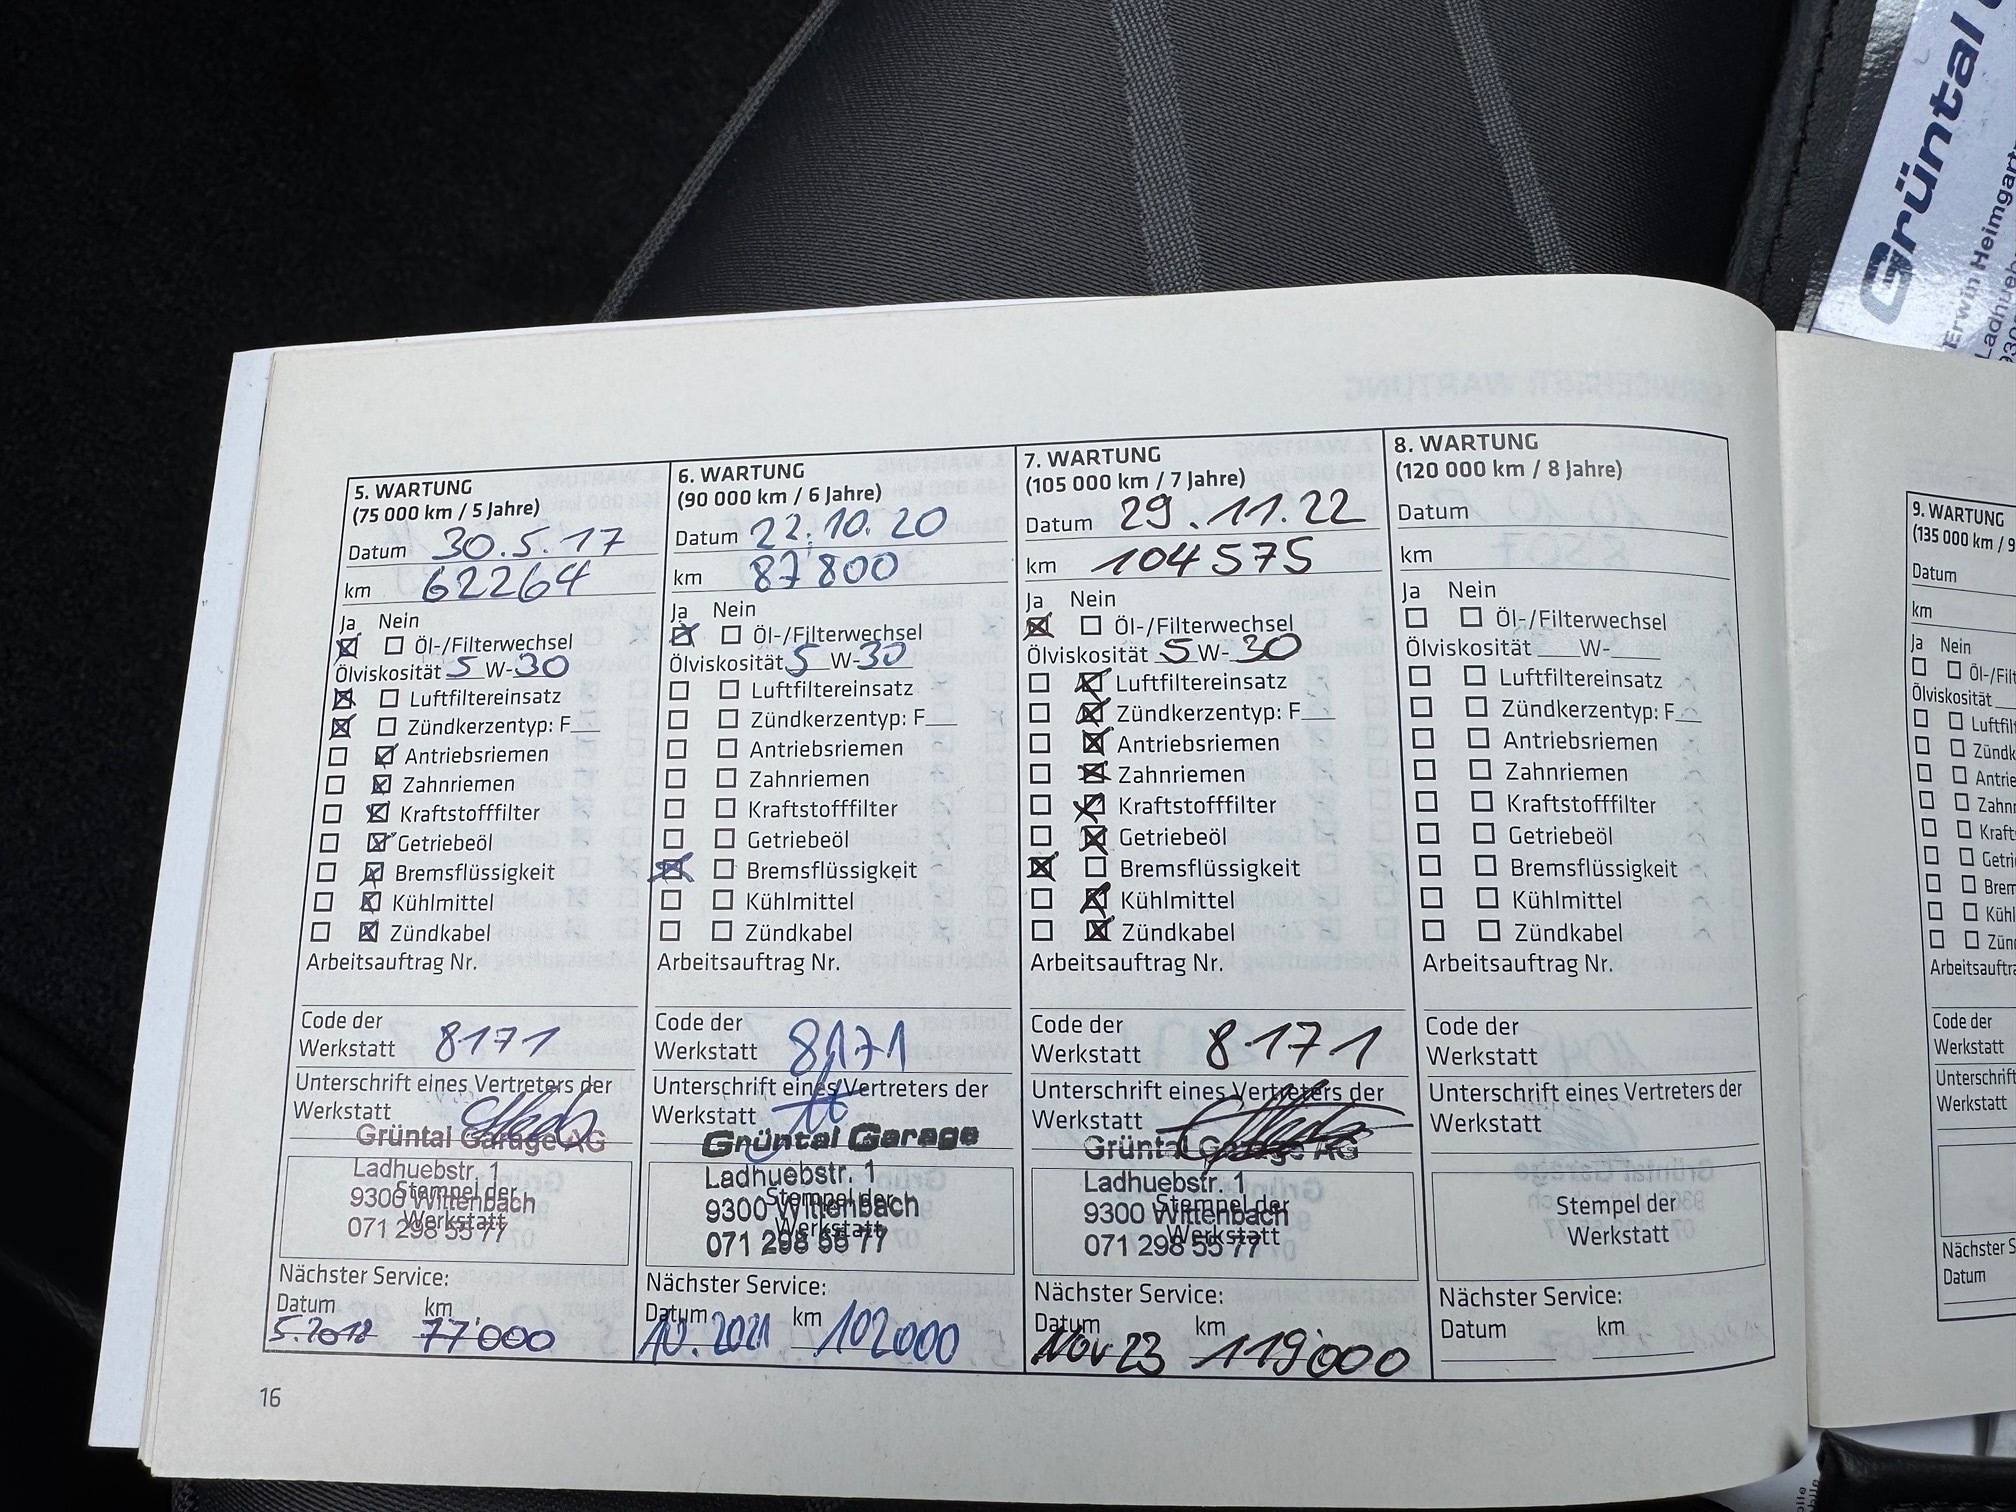 Grüntal
Erwin Heimgart
5. WARTUNG
(75 000 km / 5 Jahre)
Datum 30.5.17
km 62264
Ja Nein
Öl-/Filterwechsel
Ölviskosität 5 W-30
Luftfiltereinsatz
Zündkerzentyp: F__
Antriebsriemen
Zahnriemen
Kraftstofffilter
Getriebeöl
Bremsflüssigkeit
Kühlmittel
Zündkabel
Arbeitsauftrag Nr.
Code der
Werkstatt 8171
Unterschrift eines Vertreters der
Werkstatt
Grüntal Garage AG
Ladhuebstr. 1
9300 Wittenbach
071 298 55 77
Stempel der
Werkstatt
Nächster Service:
Datum km
5.2018 77'000
6. WARTUNG
(90 000 km / 6 Jahre)
Datum 22.10.20
km 87800
Ja Nein
Öl-/Filterwechsel
Ölviskosität 5 W-30
Luftfiltereinsatz
Zündkerzentyp: F__
Antriebsriemen
Zahnriemen
Kraftstofffilter
Getriebeöl
Bremsflüssigkeit
Kühlmittel
Zündkabel
Arbeitsauftrag Nr.
Code der
Werkstatt 8171
Unterschrift eines Vertreters der
Werkstatt
Grüntal Garage
Ladhuebstr. 1
9300 Wittenbach
071 298 55 77
Stempel der
Werkstatt
Nächster Service:
Datum km
10.2021 102000
7. WARTUNG
(105 000 km / 7 Jahre)
Datum 29.11.22
km 104575
Ja Nein
Öl-/Filterwechsel
Ölviskosität 5 W-30
Luftfiltereinsatz
Zündkerzentyp: F__
Antriebsriemen
Zahnriemen
Kraftstofffilter
Getriebeöl
Bremsflüssigkeit
Kühlmittel
Zündkabel
Arbeitsauftrag Nr.
Code der
Werkstatt 8171
Unterschrift eines Vertreters der
Werkstatt
Grüntal Garage AG
Ladhuebstr. 1
9300 Wittenbach
071 298 55 77
Stempel der
Werkstatt
Nächster Service:
Datum km
Nov 23 119'000
8. WARTUNG
(120 000 km / 8 Jahre)
Datum
km
Ja Nein
Öl-/Filterwechsel
Ölviskosität __W-__
Luftfiltereinsatz
Zündkerzentyp: F__
Antriebsriemen
Zahnriemen
Kraftstofffilter
Getriebeöl
Bremsflüssigkeit
Kühlmittel
Zündkabel
Arbeitsauftrag Nr.
Code der
Werkstatt
Unterschrift eines Vertreters der
Werkstatt
Stempel der
Werkstatt
Nächster Service:
Datum km
16
9. WARTUNG
(135 000 km / 9
Datum
km
Ja Nein
Öl-/Filt
Ölviskosität
Luftfi
Zündk
Antrie
Zahnr
Kraft
Getri
Brem
Kühl
Zün
Arbeitsauftra
Code der
Werkstatt
Unterschrift
Werkstatt
Nächster S
Datum